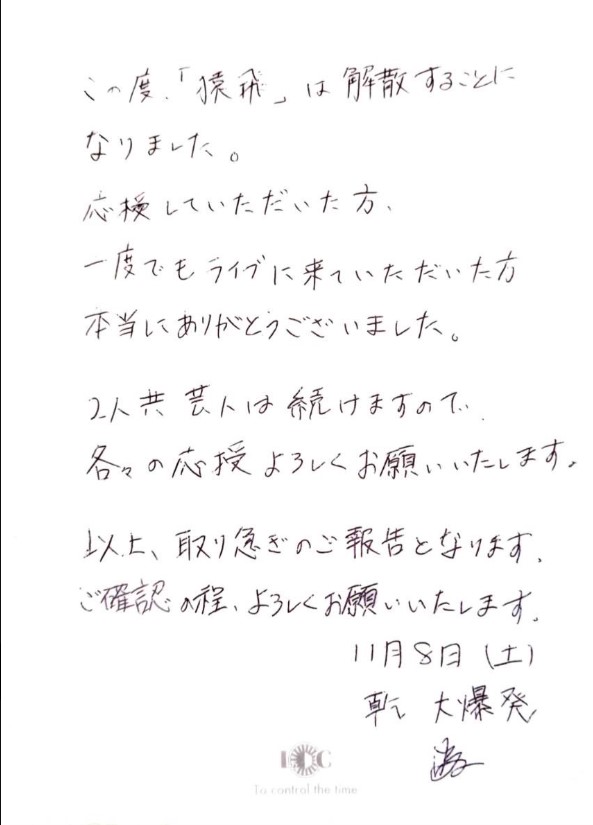 この度、「猿飛」は解散することに
なりました。
応援していただいた方、
一度でもライブに来ていただいた方
本当にありがとうございました。
2人共芸人は続けますので、
各々の応援よろしくお願いいたします。
以上、取り急ぎのご報告となります。
ご確認の程、よろしくお願いいたします。
11月8日(土)
乾 大爆発
To control the time